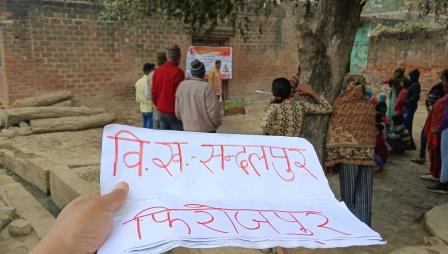 वि.ख.-सन्दलपुर
फिरोजपुर